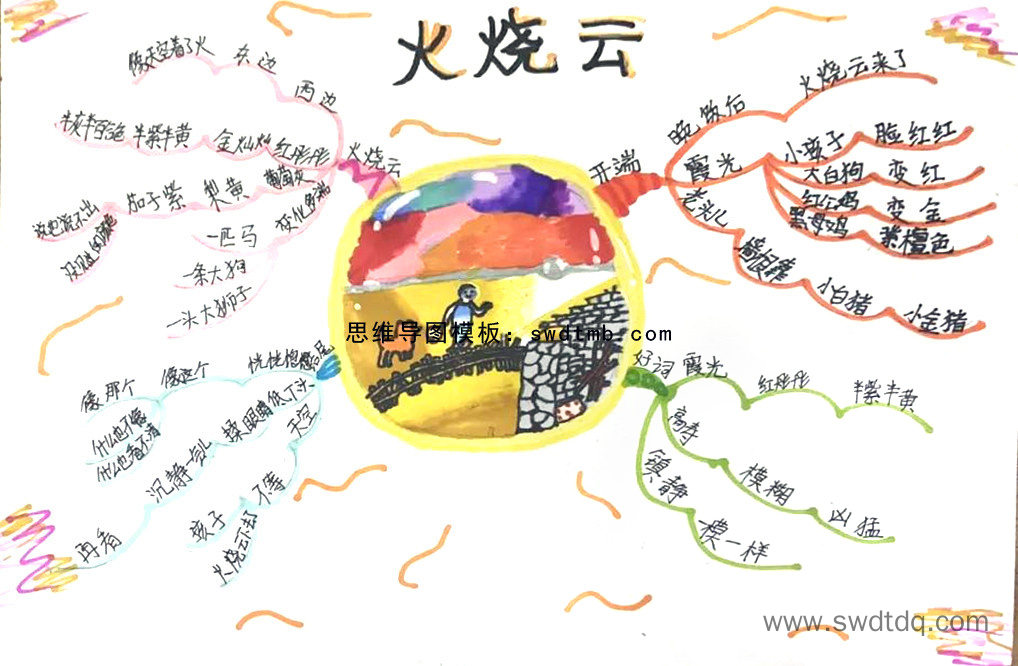 火烧云
火烧云
西边
东边
像天空着了火
红彤彤
金灿灿
半紫半黄
半灰半百合色
葡萄灰
梨黄
茄子紫
说也说不出
变化多端
一匹马
一条大狗
一头大狮子
开端
晚饭后
火烧云来了
霞光
小孩子 脸红红
大白狗 变红
红公鸡 变金
黑母鸡 紫檀色
老头儿
墙根靠
小白猪
小金猪
思维导图模板：swdtmb.com
结尾
恍恍惚惚
像这个
像那个
什么也不像
什么也看不清
低下头
揉眼睛
沉静一会儿
再看
天空
不等
孩子
火烧云下却
好词
霞光
红彤彤
半紫半黄
高寿
模糊
凶猛
镇静
模一样
www.swdtdq.com